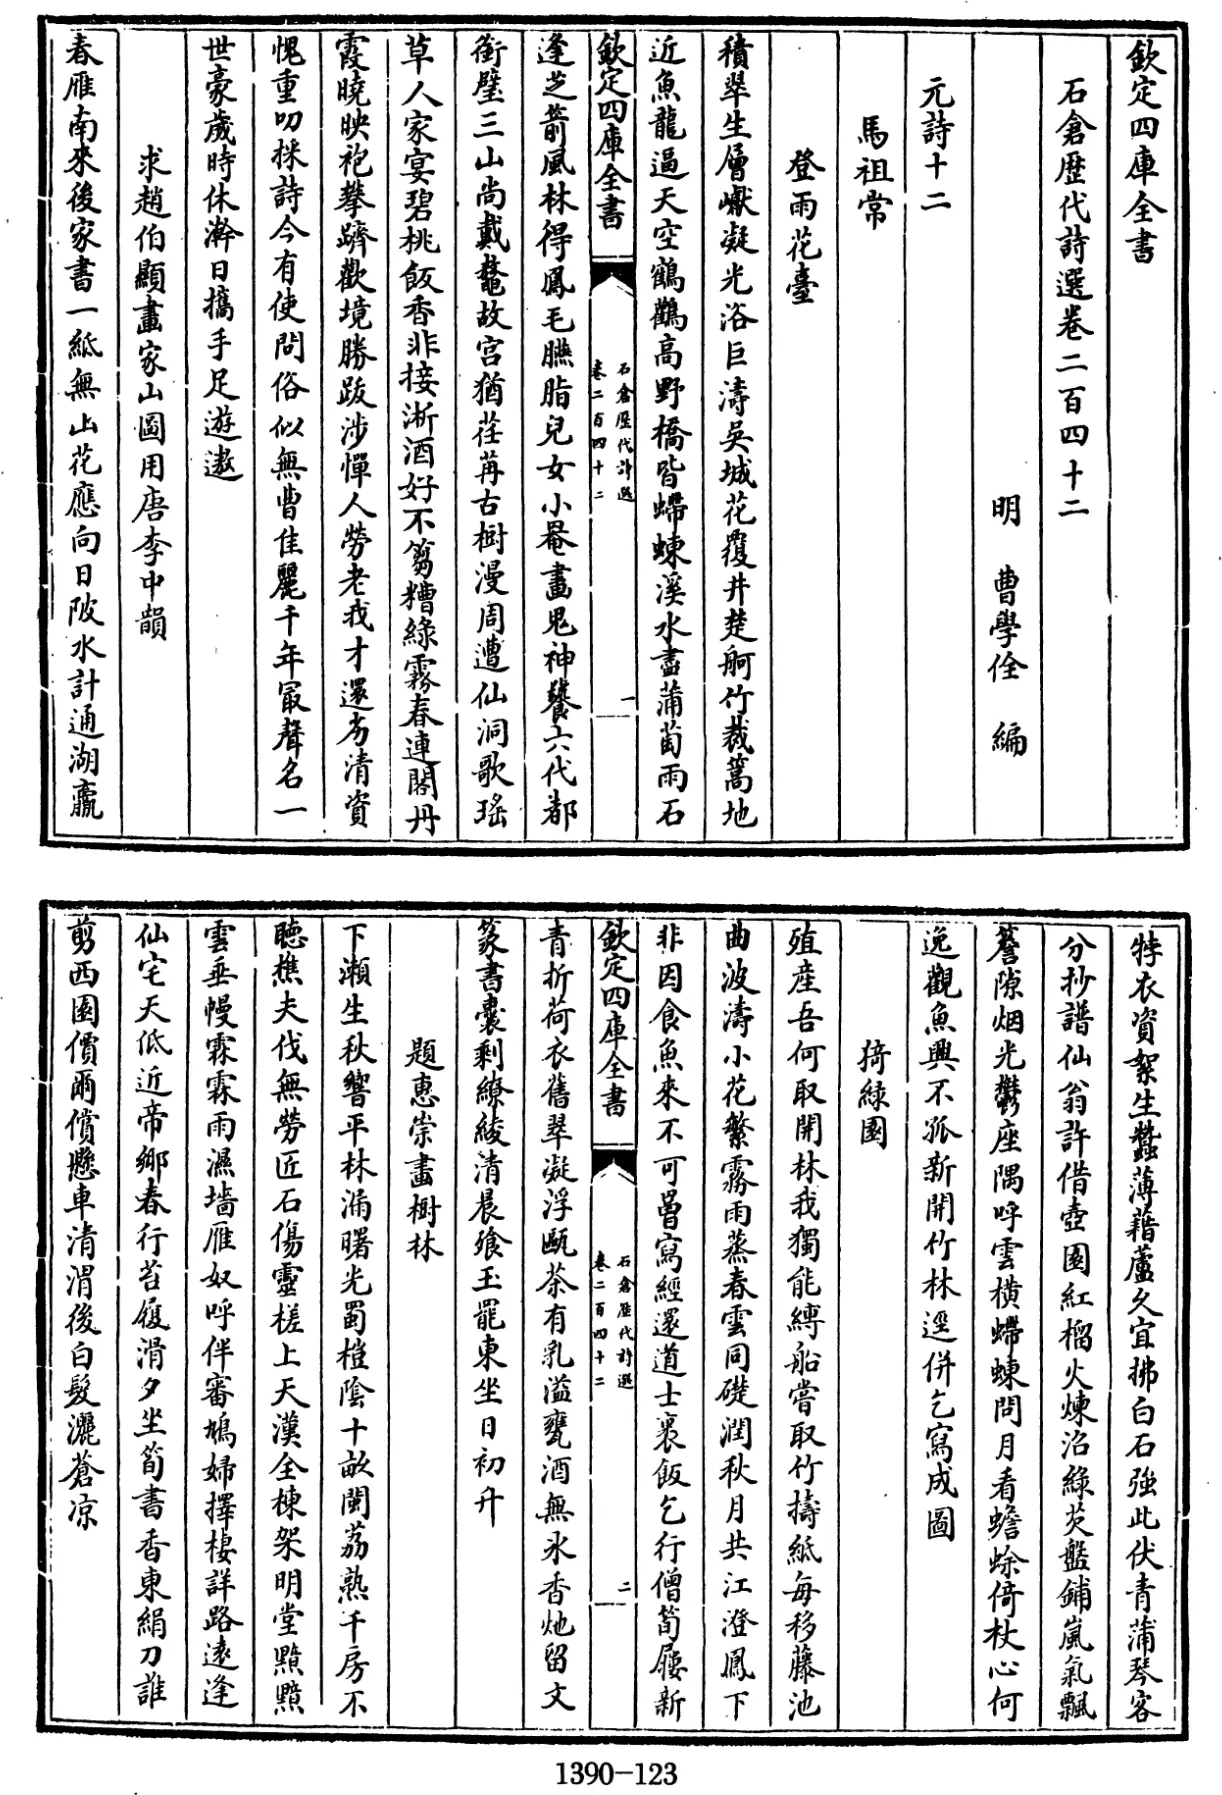 欽定四庫全書
石倉歴代詩選巻二百四十二
明 曹學佺 編
元詩十二
馬祖常
登雨花臺
積翠生層巘凝光浴巨濤吳城花覆井楚舸竹裁篙地
近魚龍逼天空鶴鸛高野橋皆螮蝀溪水盡蒲萄雨石
欽定四庫全書
石倉歴代詩選
巻二百四十二
一
逢芝箭風林得鳳毛臙脂兒女小罨畫鬼神饕六代都
銜璧三山尚戴鼇故宫猶荏苒古樹漫周遭仙洞歌瑤
草人家宴碧桃飯香非接淅酒好不篘糟綠霧春連閣丹
霞曉映袍攀躋歡境勝跋涉憚人勞老我才還劣清資
愧重叨採詩今有使問俗似無曹佳麗千年冣聲名一
世豪歲時休澣日攜手足遊遨
求趙伯顯畫家山圖用唐李中韻
春雁南來後家書一紙無山花應向日陂水計通湖臝
牸衣資絮生蠶薄藉蘆久宜拂白石強此伏青蒲琴客
分抄譜仙翁許借壺園紅榴火煉沼綠芡盤鋪嵐氣飄
簷隙烟光鬱座隅呼雲横螮蝀問月看蟾蜍倚杖心何
逸觀魚興不孤新開竹林逕併乞寫成圖
猗綠園
殖産吾何取開林我獨能縛船嘗取竹擣紙每移藤池
曲波濤小花繁霧雨蒸春雲同礎潤秋月共江澄鳳下
非因食魚來不可罾寫經還道士裹飯乞行僧筍屨新
欽定四庫全書
石倉歴代詩選
巻二百四十二
二
青折荷衣舊翠凝浮甌茶有乳溢甕酒無氷香灺留文
篆書囊剩繚綾清晨飱玉罷東坐日初升
題惠崇畫樹林
下瀬生秋響平林涌曙光蜀榿陰十畝閩荔熟千房不
聴樵夫伐無勞匠石傷靈槎上天漢全棟架明堂黯黯
雲垂幔霖霖雨濕墻雁奴呼伴審鳩婦擇棲詳路逺逢
仙宅天低近帝鄉春行苔履滑夕坐筍書香東絹刀誰
剪西園價爾償懸車清渭後白髮灑蒼凉
1390-123